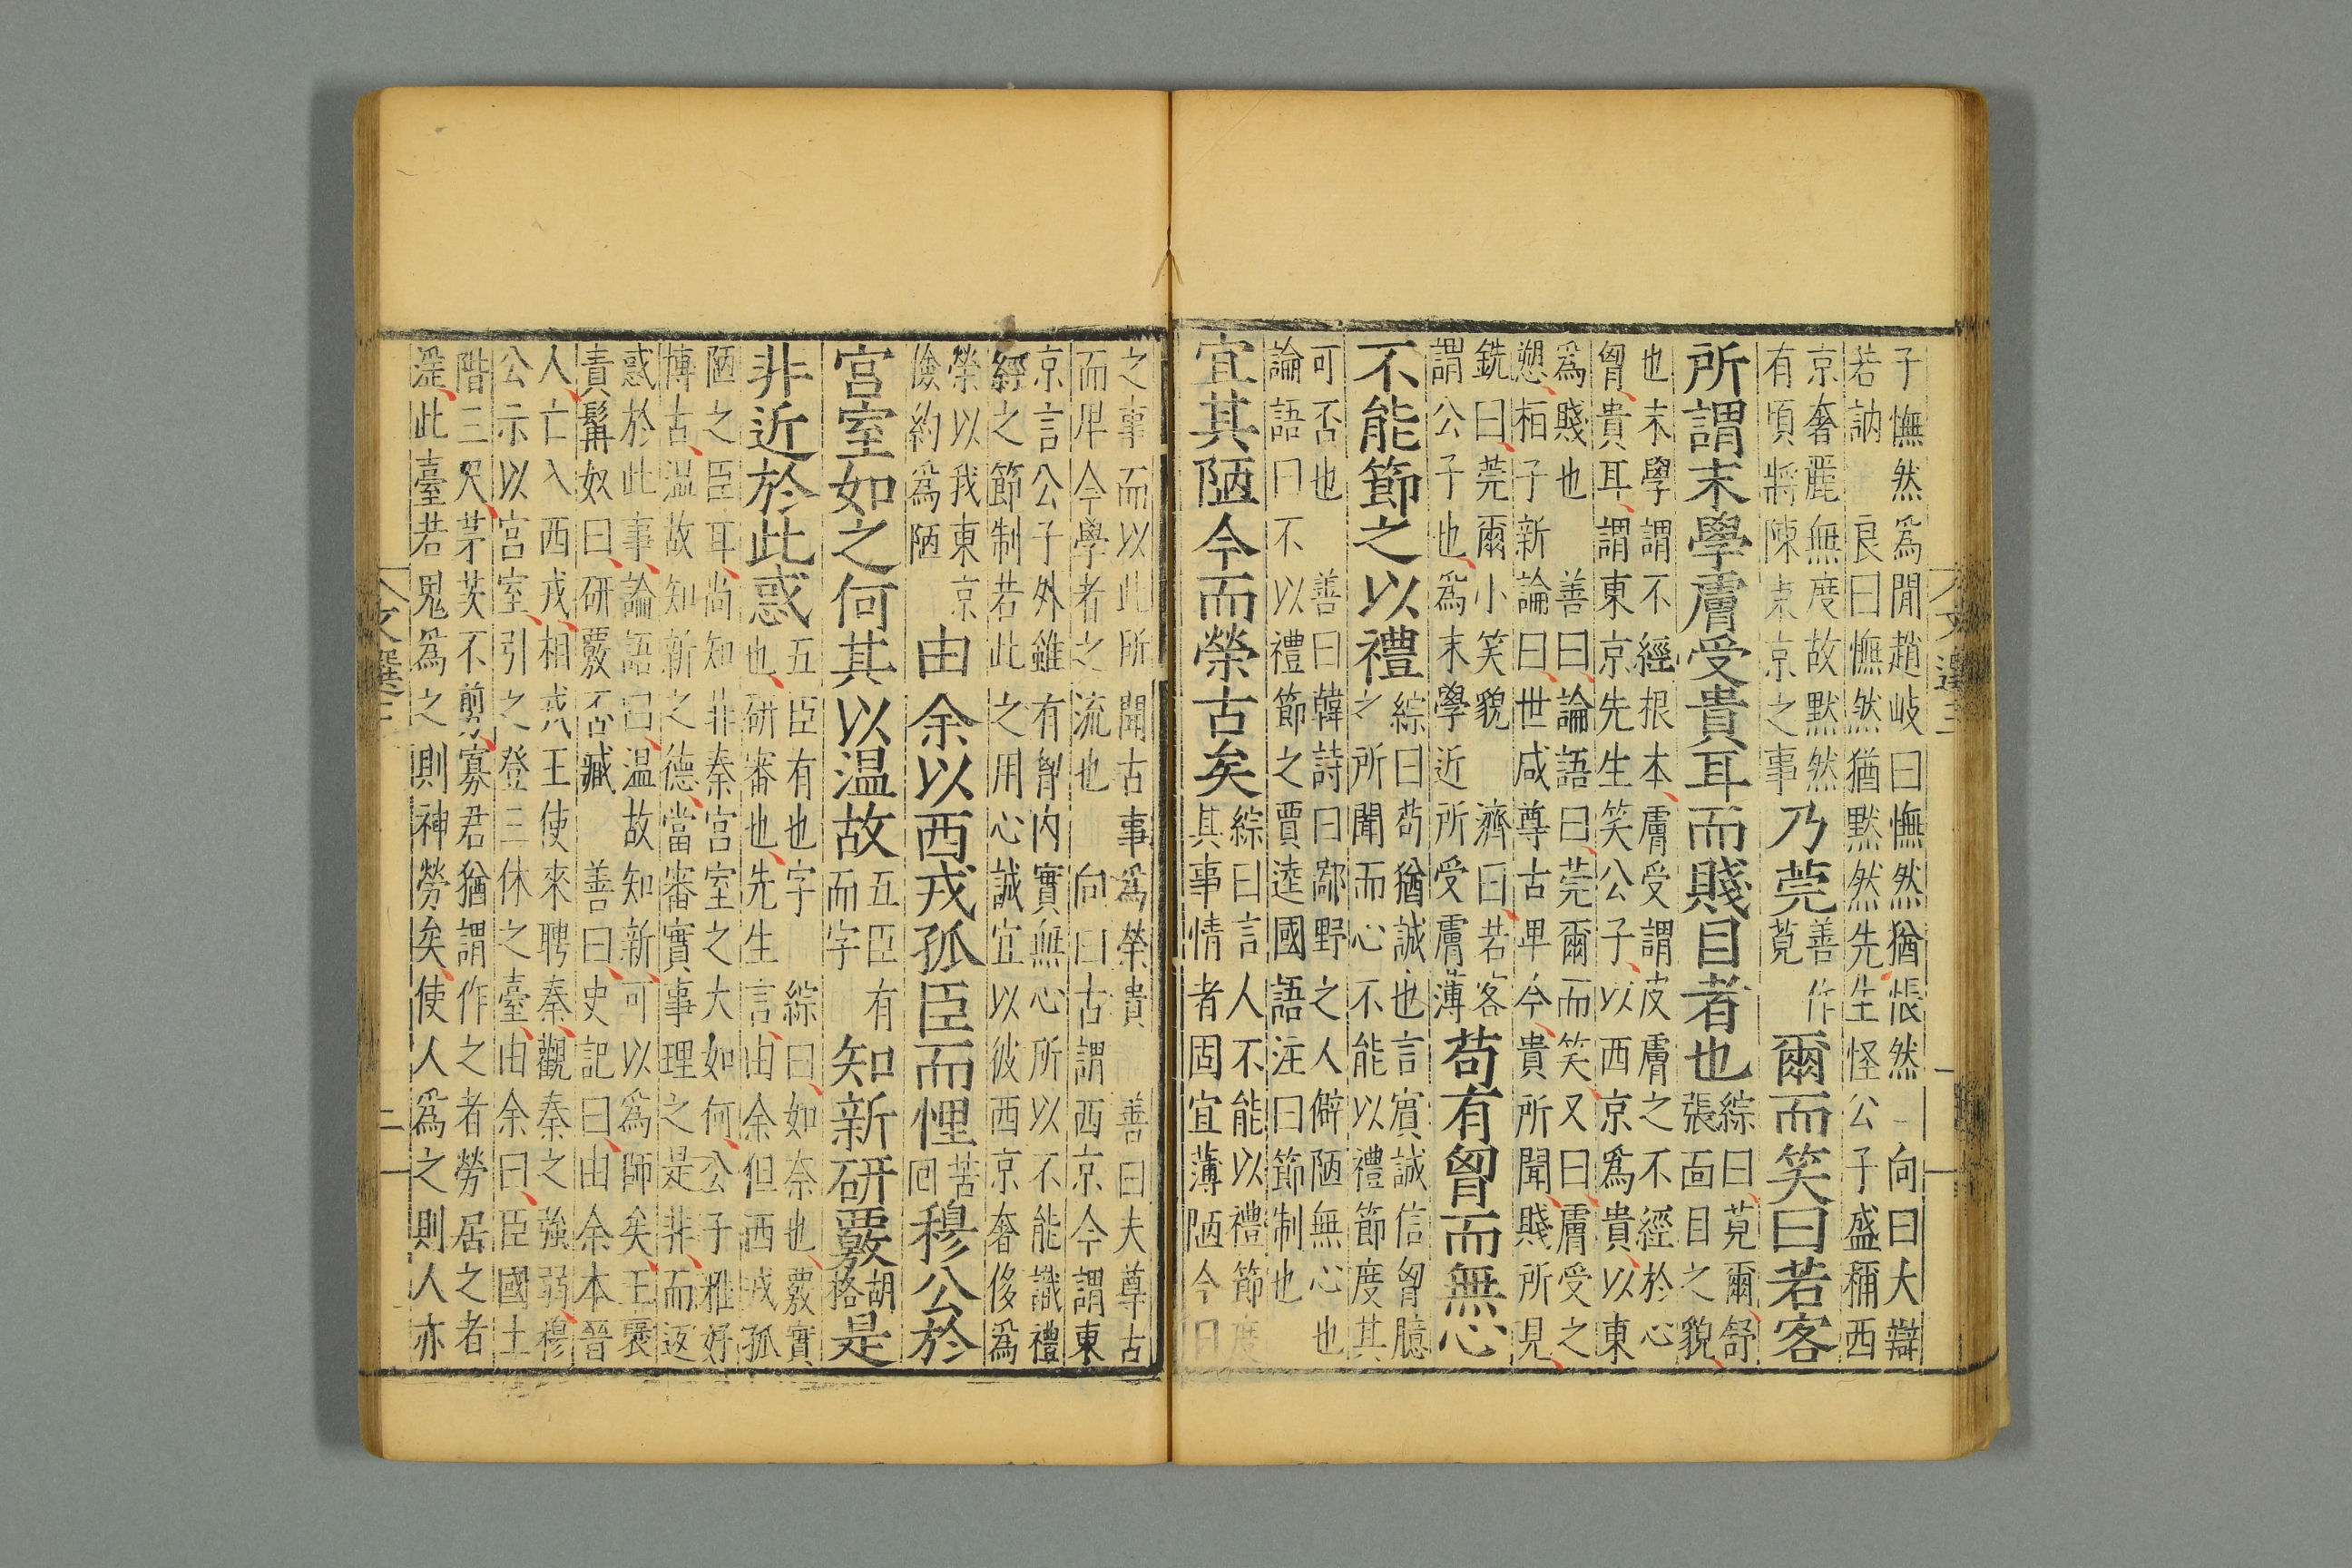 子憮然爲閒趙岐曰憮然猶悵然 向曰大辯
若訥 良曰憮然猶默然先生怪公子盛稱西
京奢麗無度故默然
有頃將陳東京之事
乃莞
善作
莧
爾而笑曰若客
所謂末學膚受貴耳而賤目者也
綜曰莧爾舒
張面目之貌
也末學謂不經根本膚受謂皮膚之不經於心
胷貴耳謂東京先生笑公子以西京爲貴以東
爲賤也 善曰論語曰莞爾而笑又曰膚受之
愬桓子新論曰世咸尊古卑今貴所聞賤所見
銑曰莞爾小笑貌 濟曰若客
謂公子也爲末學近所受膚薄
苟有胷而無心
不能節之以禮
綜曰苟猶誠也言賓誠信胷臆
之所聞而心不能以禮節度其
可否也 善曰韓詩曰鄙野之人僻陋無心也
論語曰不以禮節之賈逵國語注曰節制也
宜其陋今而榮古矣
綜曰言人不能以禮節度
其事情者固宜薄陋今日
之事而以此所聞古事爲榮貴 善曰夫尊古
而卑今學者之流也 向曰古謂西京今謂東
京言公子外雖有胷內實無心所以不能識禮
經之節制若此之用心誠宜以彼西京奢侈爲
榮以我東京
儉約爲陋
由余以西戎孤臣而悝
苦
回
穆公於
宮室如之何其以温故
五臣有
而字
知新研覈
胡
格
是
非近於此惑
五臣有也字 綜曰如奈也覈實
也研審也先生言由余但西戎孤
陋之臣耳尚知非秦宮室之大如何公子雅好
博古温故知新之德當審實事理之是非而返
惑於此事論語曰温故知新可以爲師矣王褒
責髯奴曰研覈否臧 善曰史記曰由余本晉
人亡入西戎相戎王使來聘秦觀秦之強弱穆
公示以宮室引之登三休之臺由余曰臣國土
階三尺茅茨不剪寡君猶謂作之者勞居之者
淫此臺若鬼爲之則神勞矣使人爲之則人亦